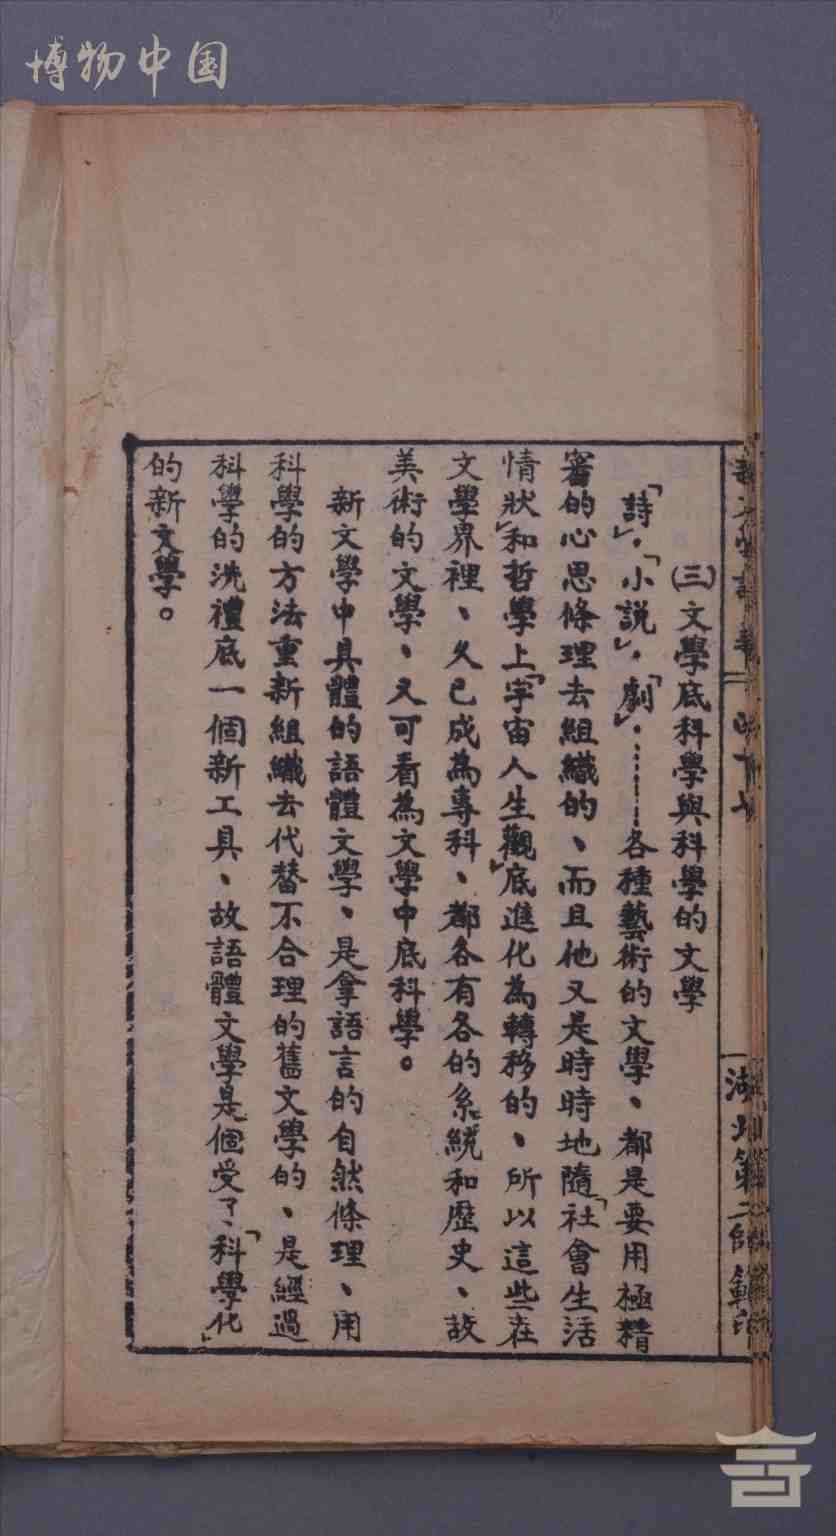 博物中国
(三)文學底科學與科學的文學
「詩」,「小說」,「劇」,………各種藝術的文學、都是要用極精
審的心思條理去組織的、而且他又是時時地隨「社會生活
情狀」和哲學上「宇宙人生觀」底進化為轉移的、所以這些在
文學界裡、久已成為專科、都各有各的系統和歷史、故
美術的文學、又可看為文學中底科學。
新文學中具體的語體文學、是拿語言的自然條理、用
科學的方法重新組織去代替不合理的舊文學的、是經過
科學的洗禮底一個新工具、故語體文學是個受了、「科學化」
的新文學。
湖北第二師範印